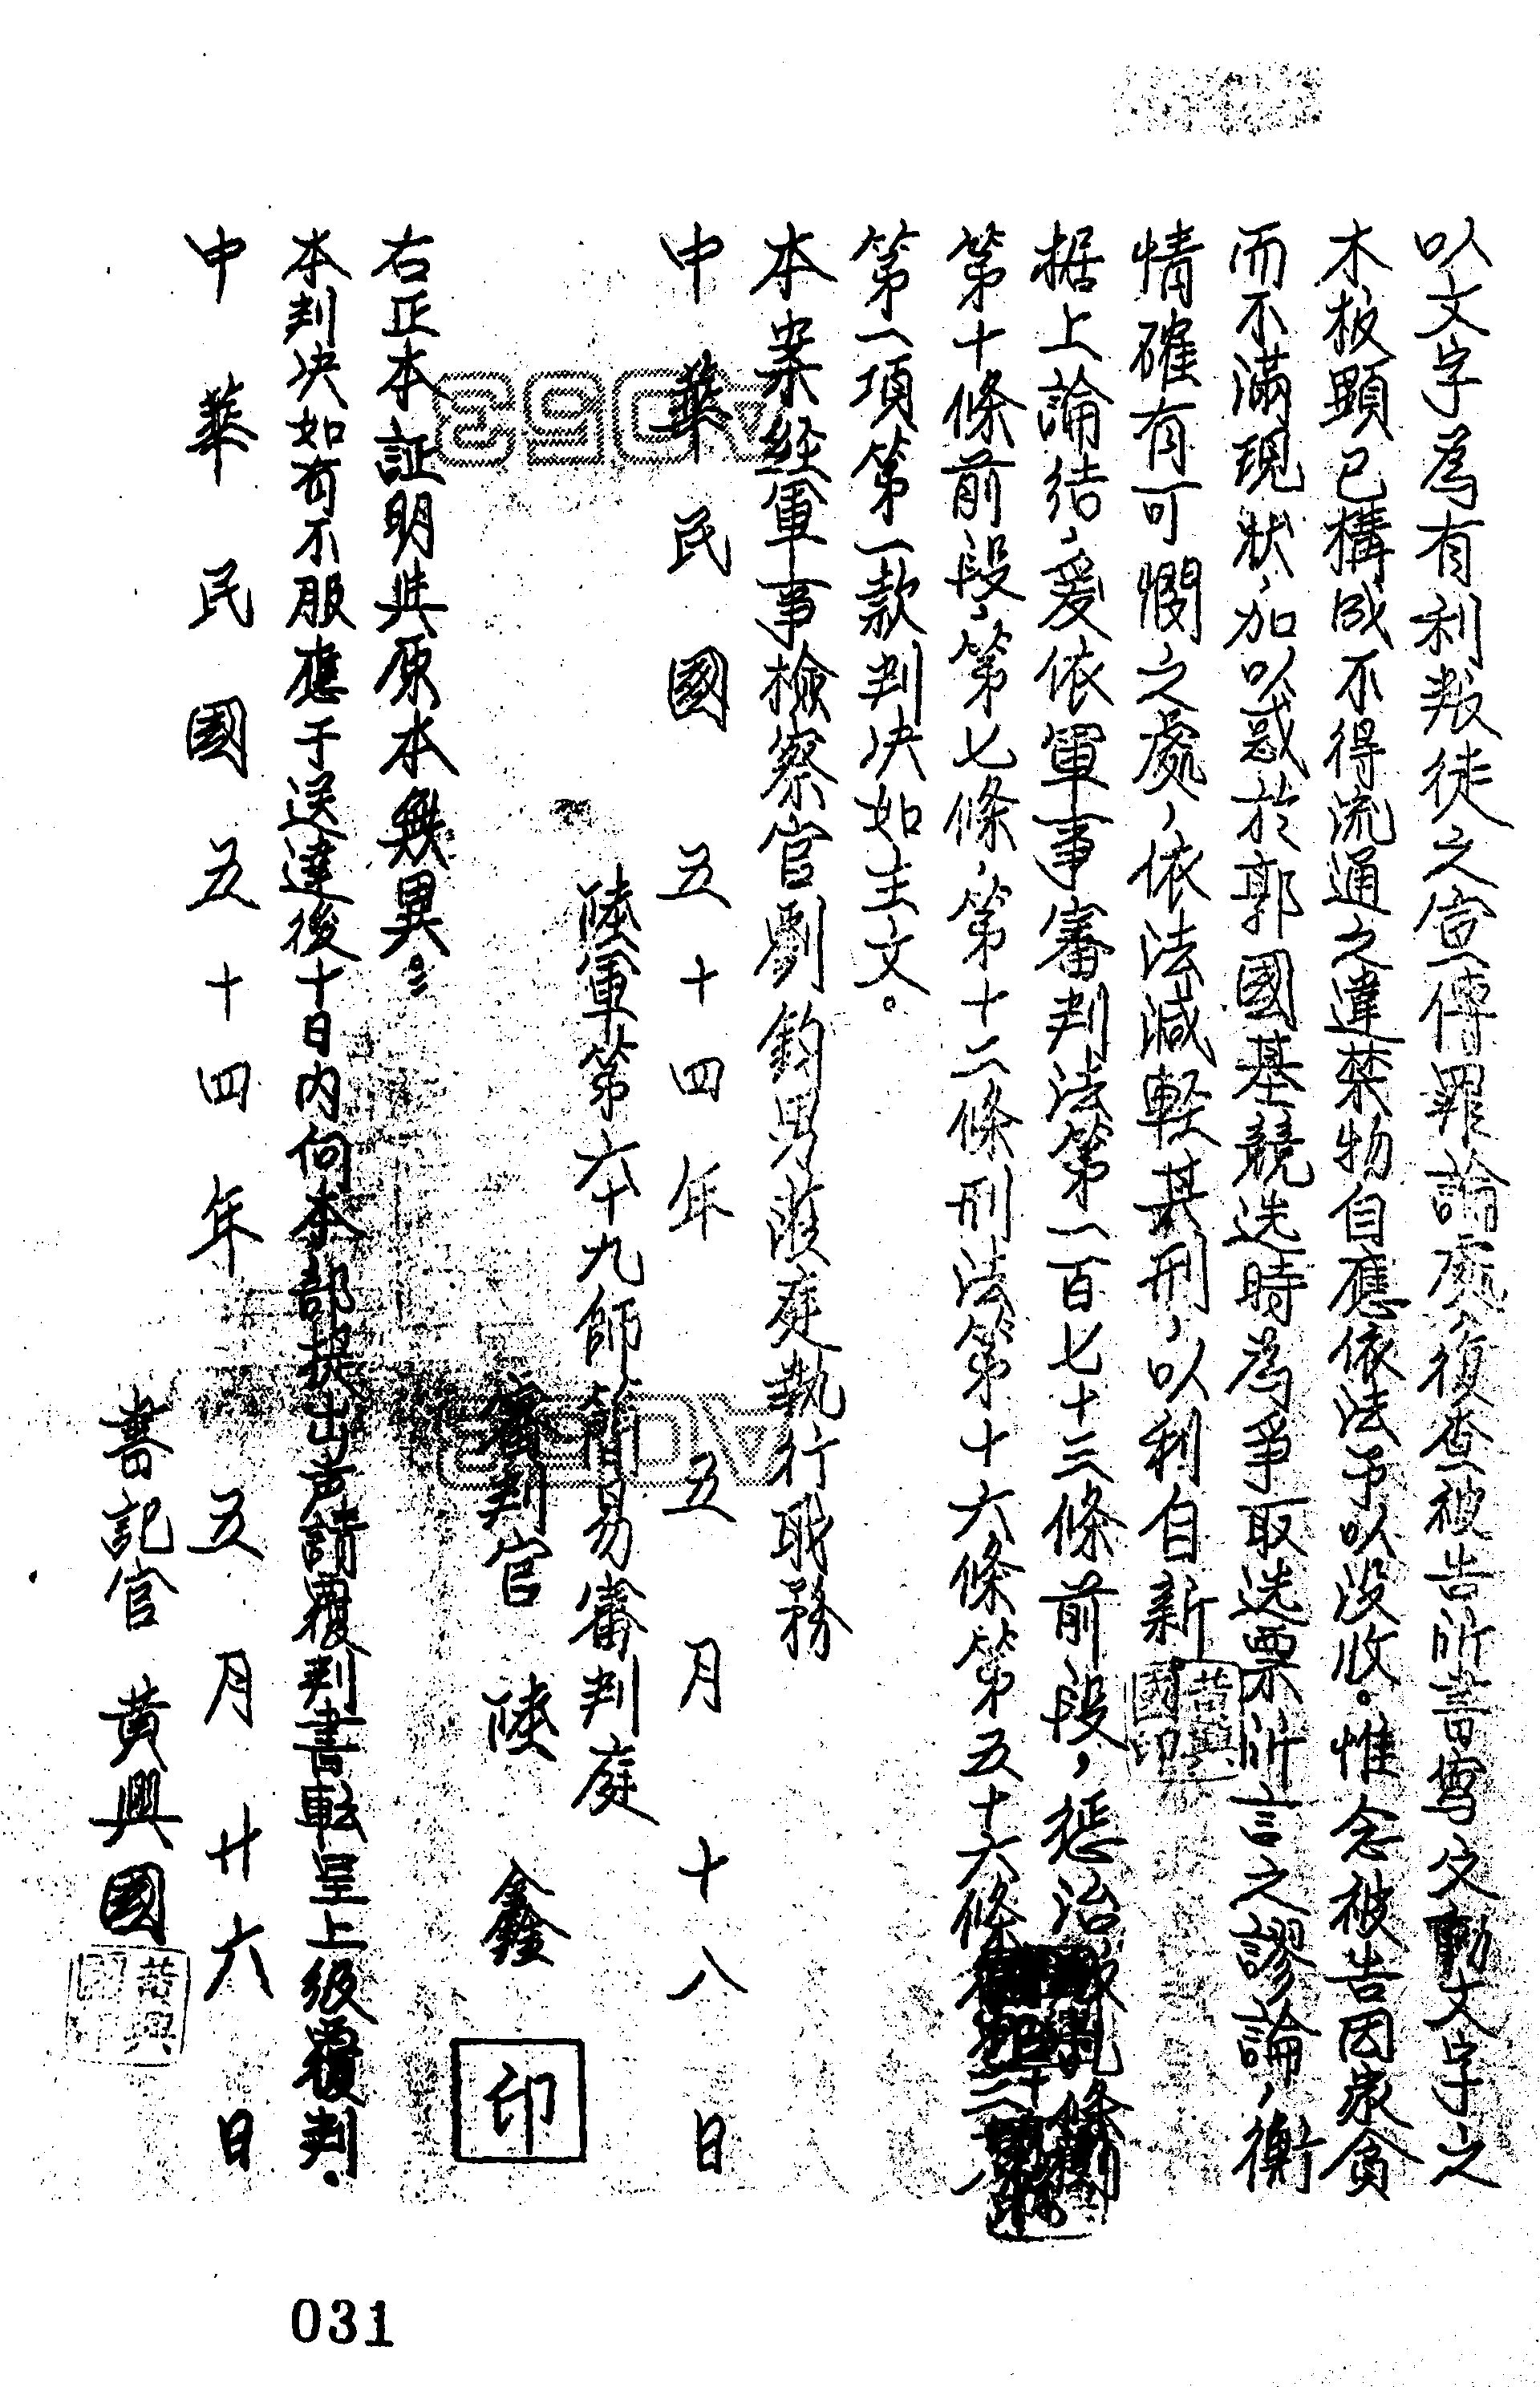 以文字為有利叛徒之宣傳罪論處，復查被告所書寫反動文字之
木板顯已構成不得流通之違禁物自應依法予以沒收。惟念被告因家貧
而不滿現狀，加以惑於郭國基競选時為爭取选票所言之謬論，衡
情確有可憫之處，依法減軽其刑，以利自新
据上論结，爰依軍事審判法第一百七十三條前段，惩治叛乱條例
第十條前段，第七條，第十二條刑法第十六條第五十六條
第一項第一款判决如主文。
本案経軍事檢察官劉鈞男蒞庭執行职務
中華民國五十四年五月十八日
陸軍第六十九師简易審判庭
審判官 陸鑫 印
右正本証明與原本無異。
本判决如有不服應于送達後十日内向本部提出声請覆判書転呈上級覆判。
中華民國五十四年五月廿六日
書記官 黃興國
黃興國印
黃興國印
A053
A053
031